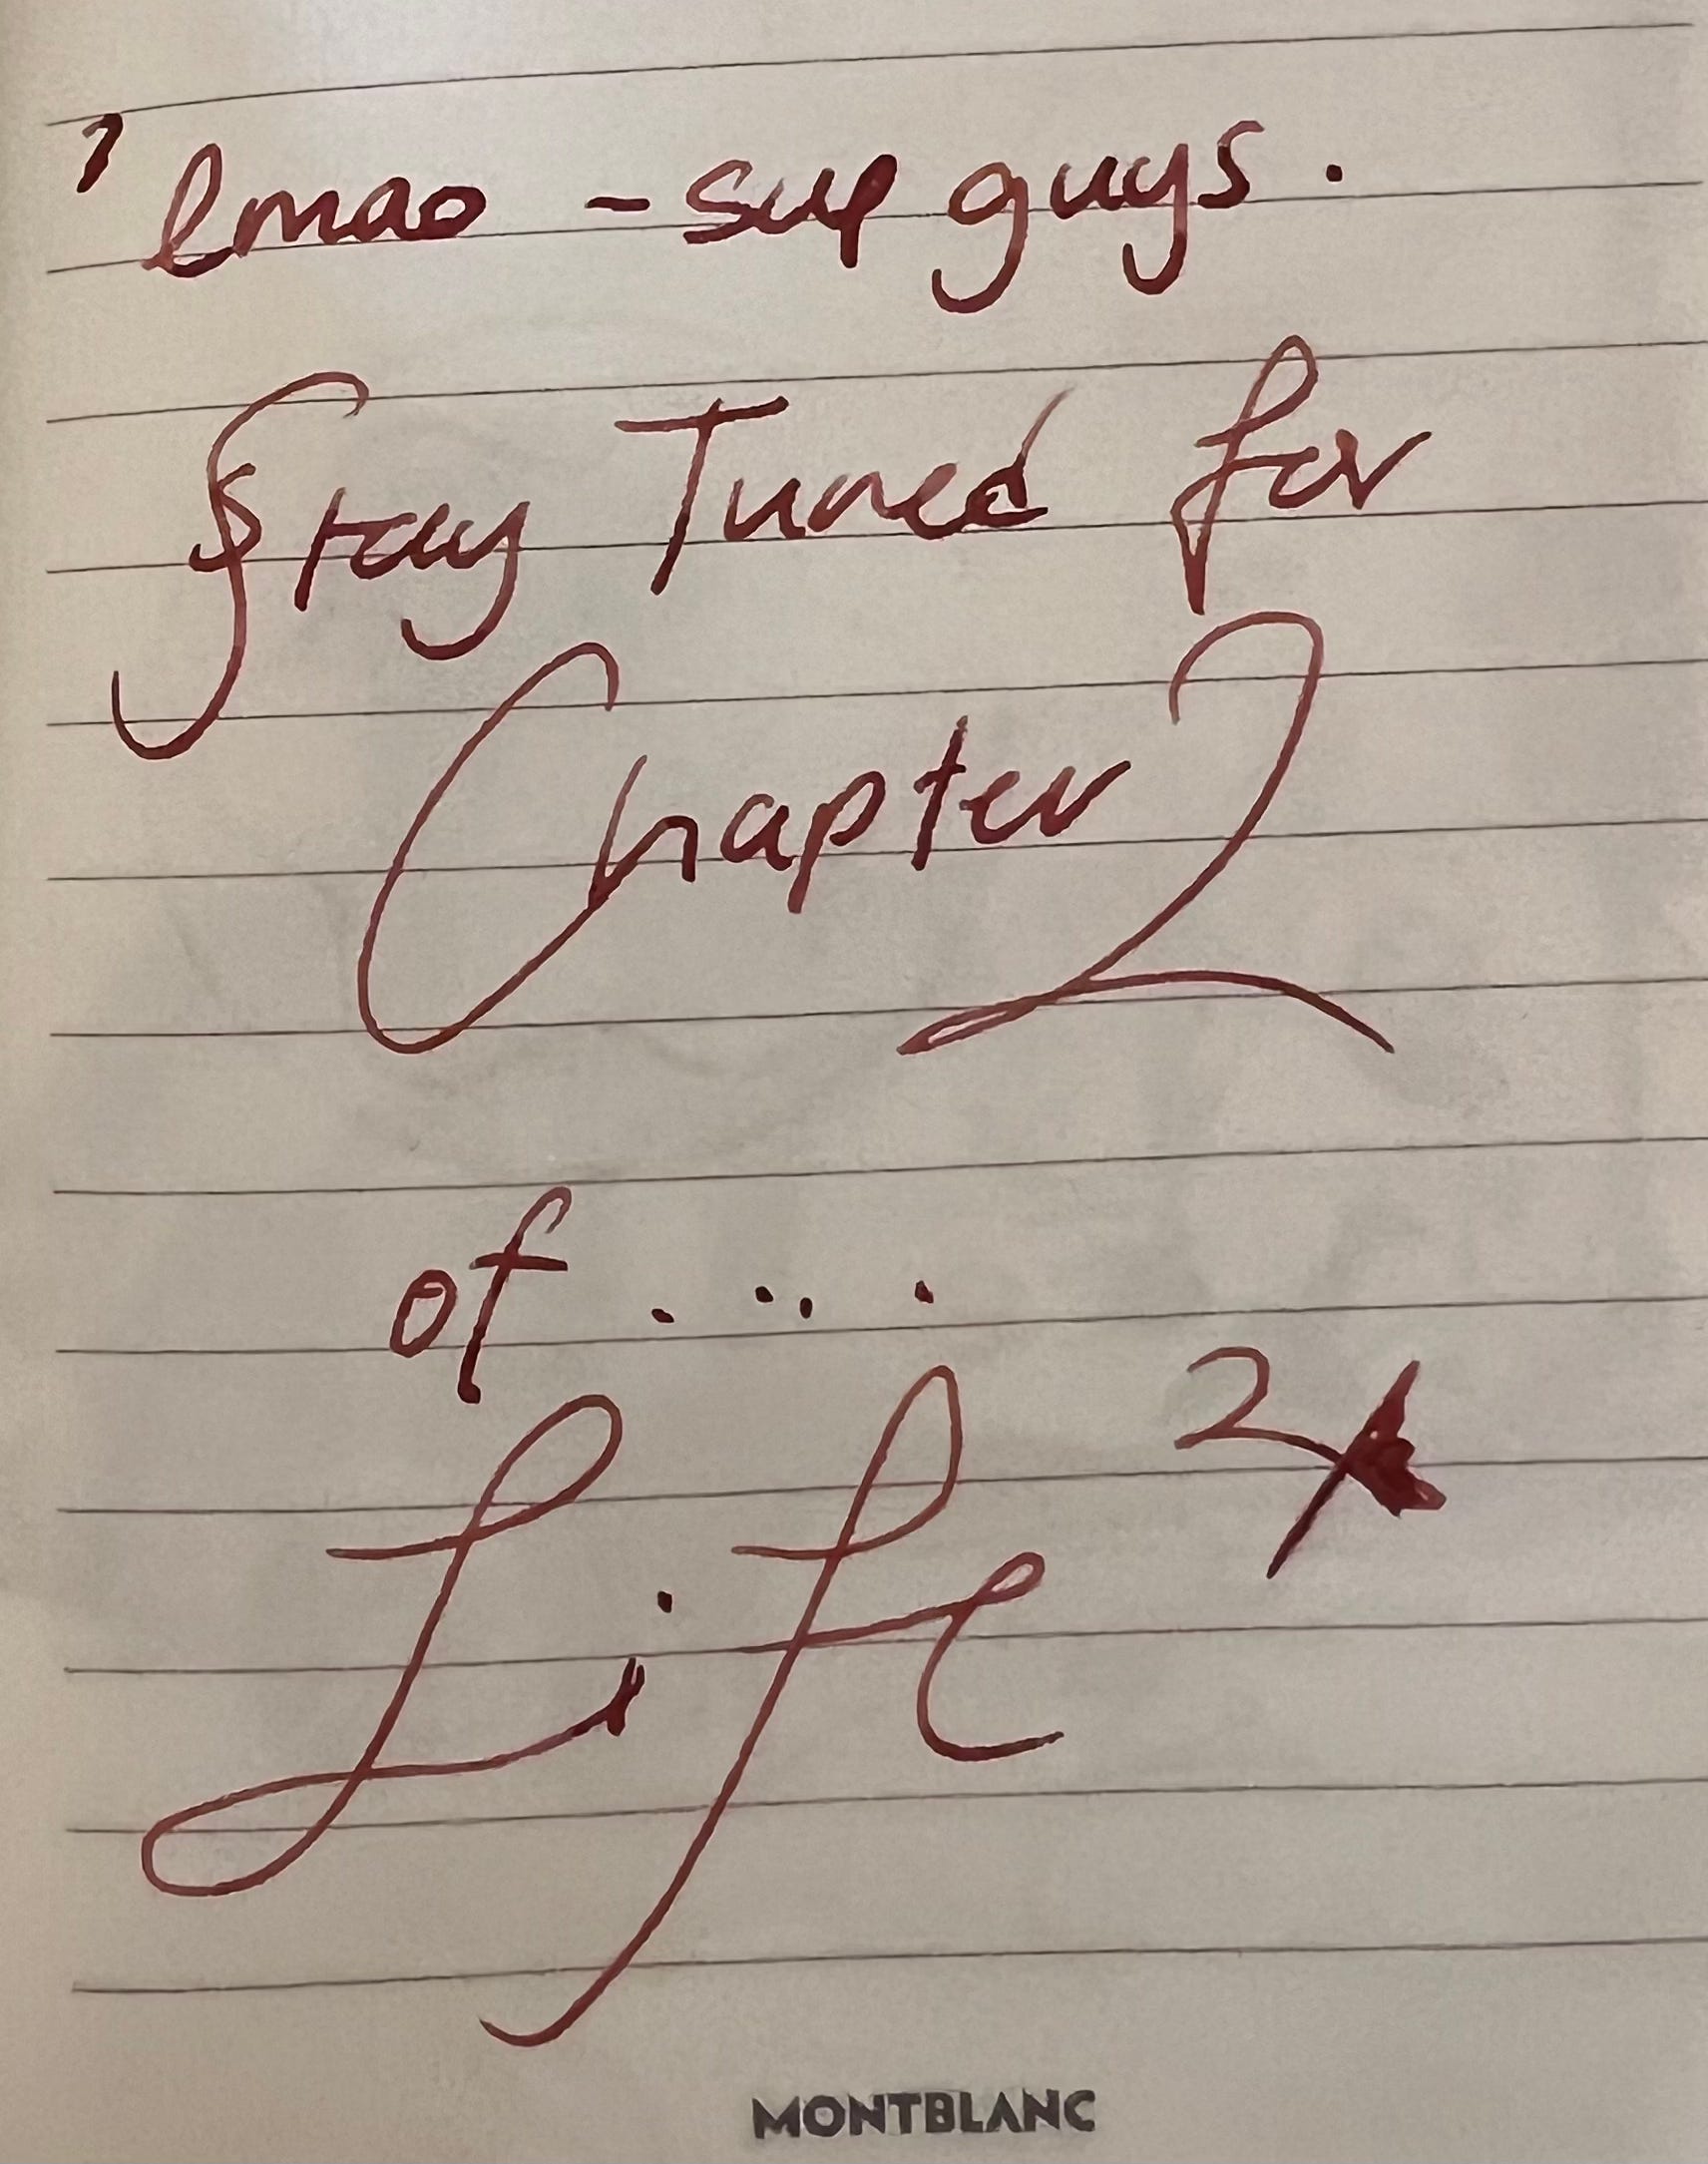 ' lmao - sup guys.
Stay Tuned for
Chapter 2
of ....
Life 2
MONTBLANC